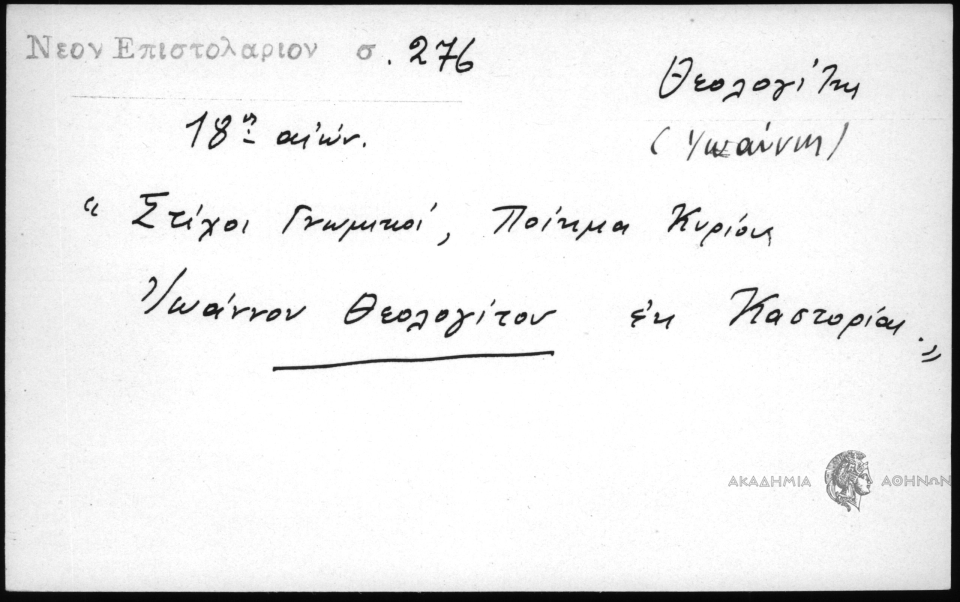 Νεον Επιστολαριον σ. 276
Θεολογίτης
(Ἰωάννης)
18ος αἰών.
“ Στίχοι Γνωμικοί, Ποίημα Κυρίου
Ἰωάννου Θεολογίτου ἐκ Καστορίας.„
ΑΚΑΔΗΜΙΑ ΑΘΗΝΩΝ